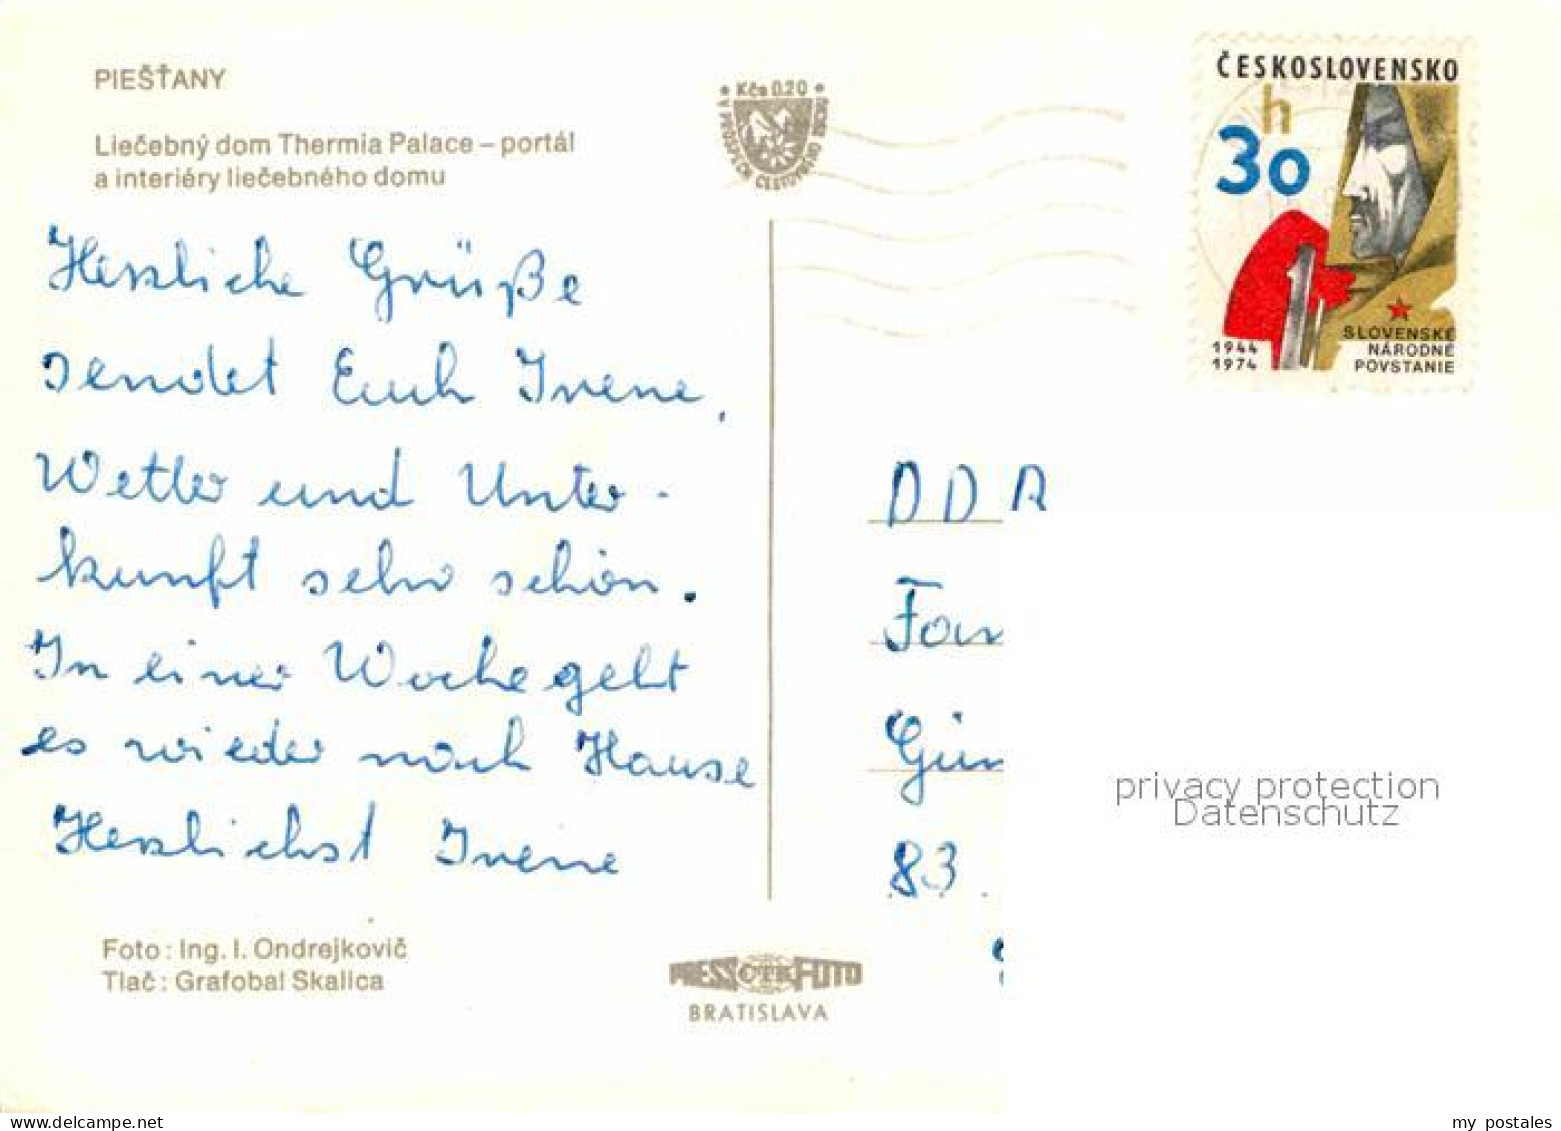 PIEŠŤANY
Liečebný dom Thermia Palace – portál
a interiéry liečebného domu
Kčs 0.20
V PROSPECH CESTOVNÉHO
ČESKOSLOVENSKO
h
30
1944
1974
SLOVENSKÉ
NÁRODNÉ
POVSTANIE
Herzliche Grüße
sendet Euch Irene,
Wetter und Unter-
kunft sehr schön.
In einer Woche geht
es wieder nach Hause
Herzlichst Irene
DDR
Fam
Gün
83
privacy protection
Datenschutz
Foto: Ing. I. Ondrejkovič
Tlač: Grafobal Skalica
PRESSFOTO
BRATISLAVA
my postales